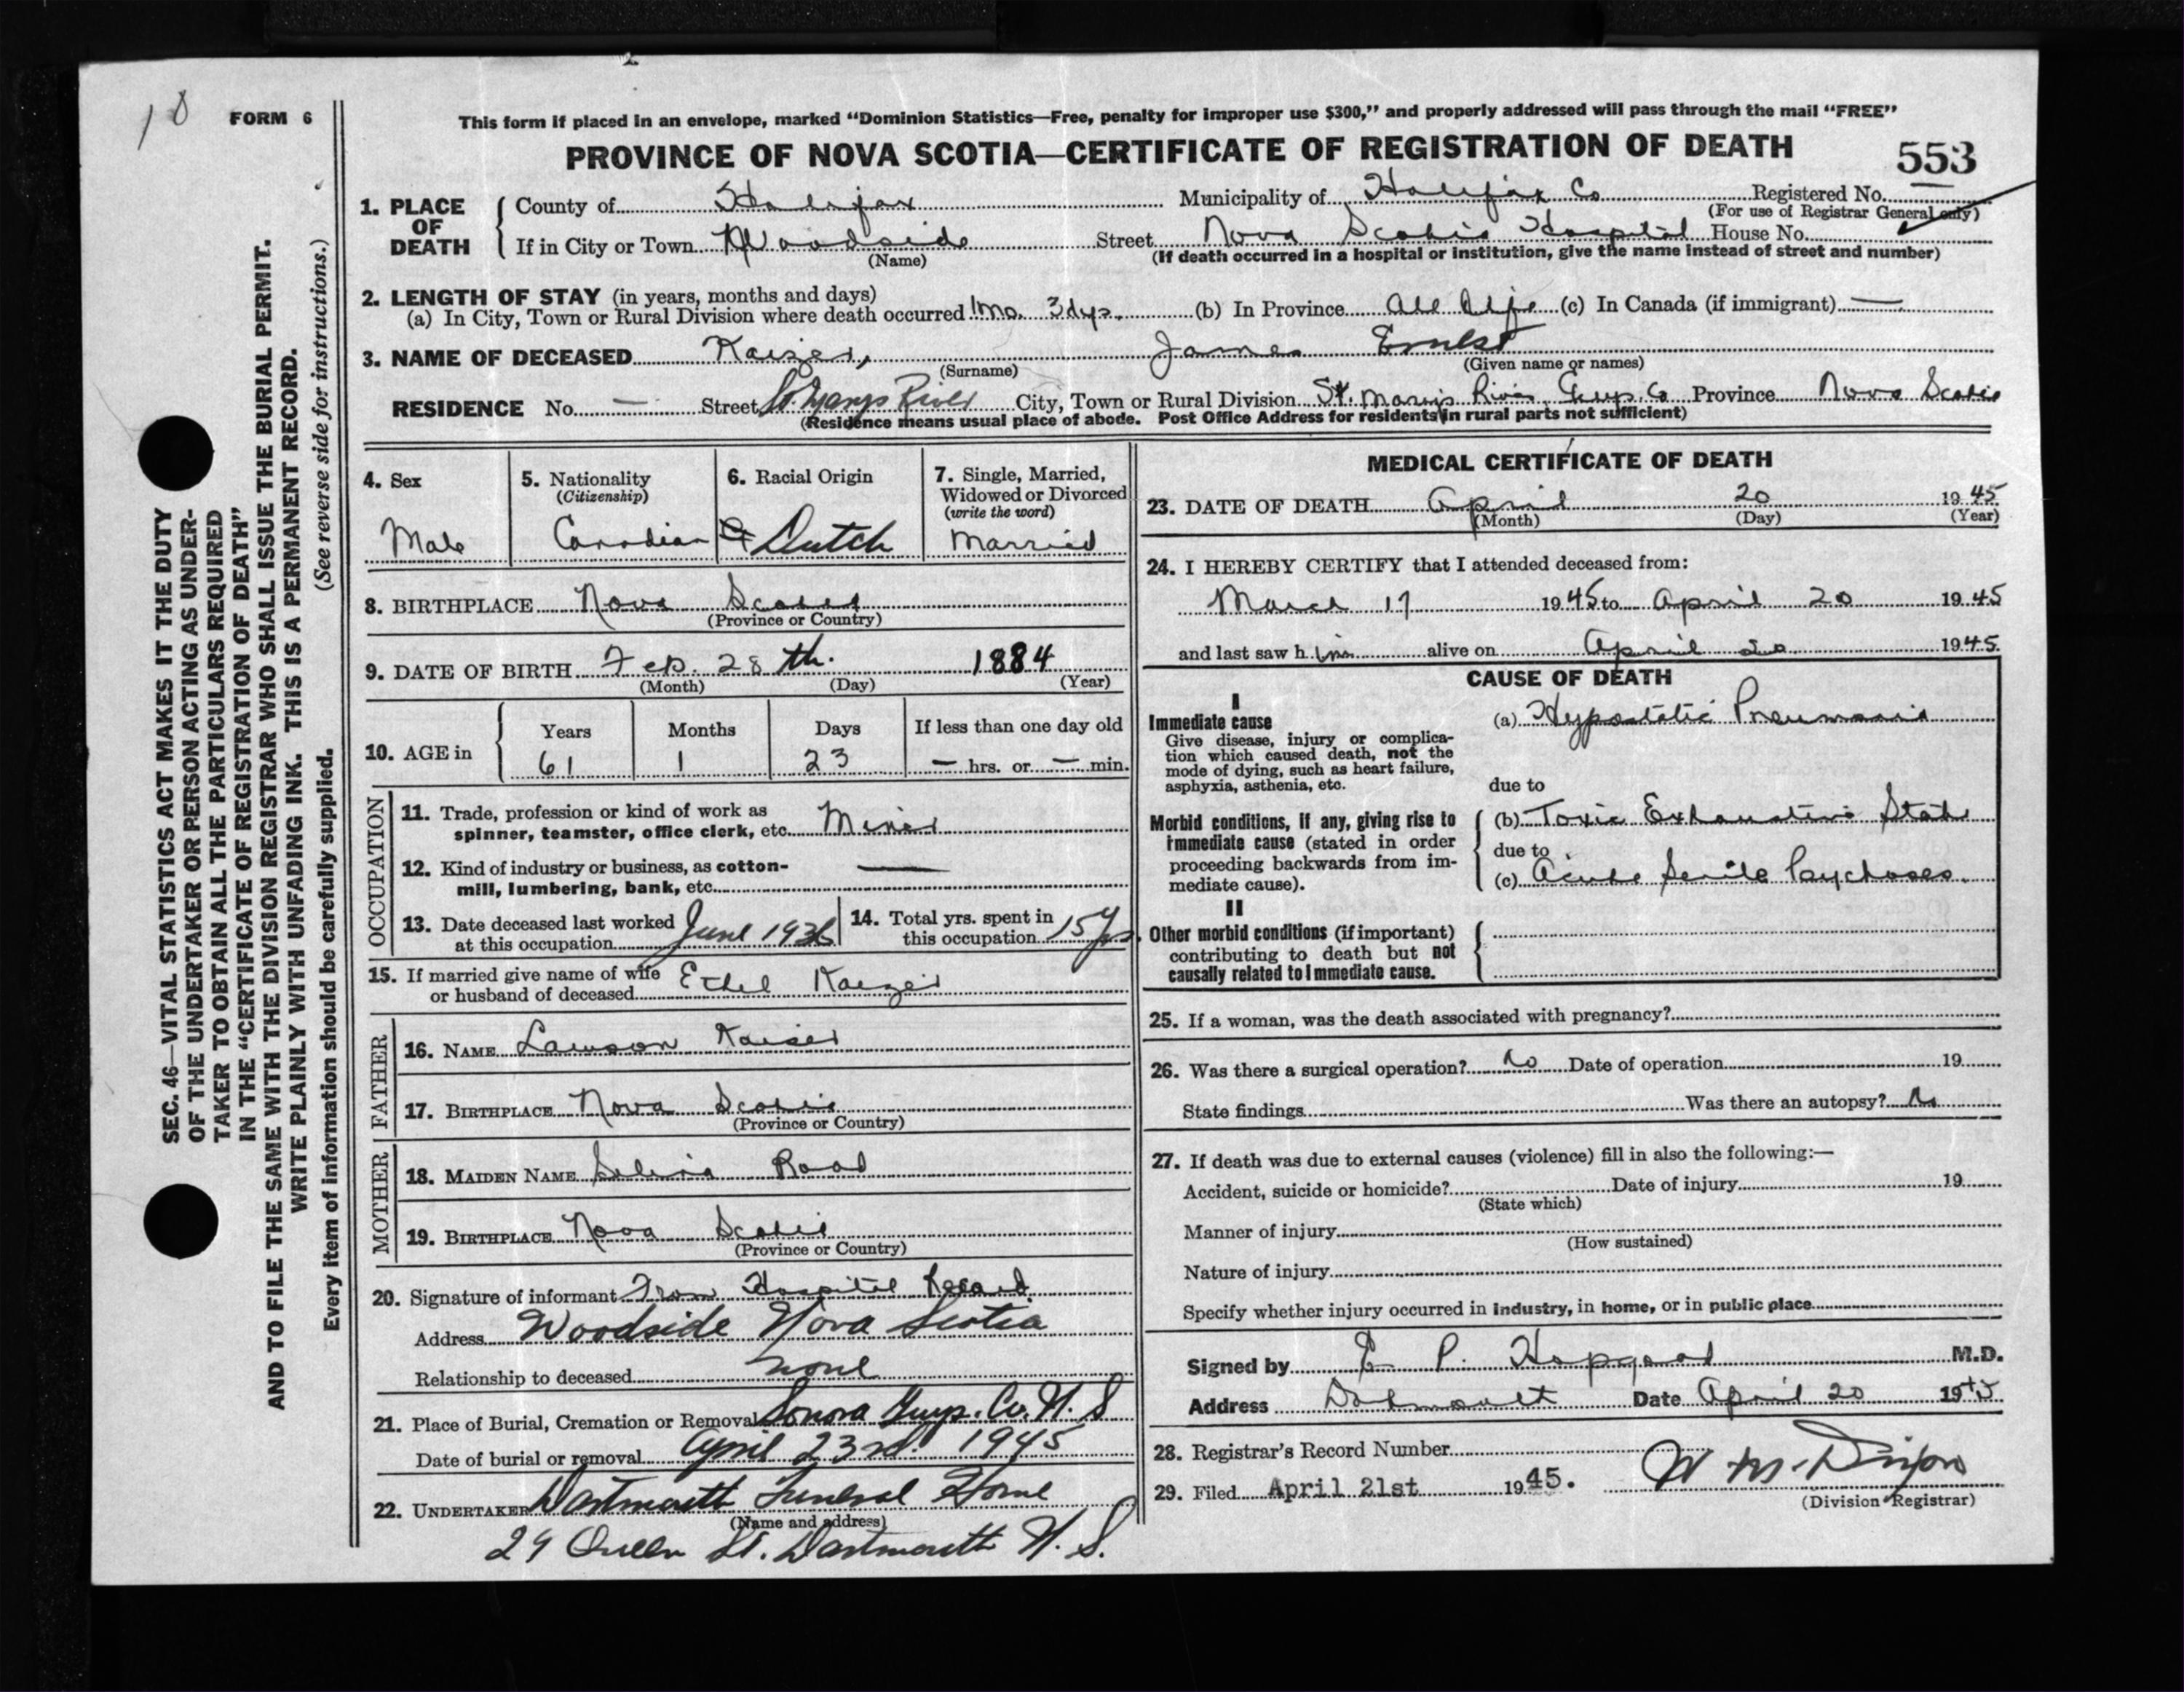 18
FORM 6
This form if placed in an envelope, marked "Dominion Statistics—Free, penalty for improper use $300," and properly addressed will pass through the mail "FREE"
PROVINCE OF NOVA SCOTIA—CERTIFICATE OF REGISTRATION OF DEATH
553
1. PLACE OF DEATH
County of Halifax Municipality of Halifax Co Registered No.
(For use of Registrar General only)
If in City or Town Woodside Street Nova Scotia Hospital House No.
(Name) (If death occurred in a hospital or institution, give the name instead of street and number)
2. LENGTH OF STAY (in years, months and days)
(a) In City, Town or Rural Division where death occurred 1 mo. 3 dys. (b) In Province All Life (c) In Canada (if immigrant) —
3. NAME OF DECEASED Kaizer, James Ernest
(Surname) (Given name or names)
RESIDENCE No. — Street St Marys River City, Town or Rural Division St. Marys River Guys. Co Province Nova Scotia
(Residence means usual place of abode. Post Office Address for residents in rural parts not sufficient)
4. Sex
Male
5. Nationality
(Citizenship)
Canadian
6. Racial Origin
Dutch
7. Single, Married,
Widowed or Divorced
(write the word)
Married
8. BIRTHPLACE Nova Scotia
(Province or Country)
9. DATE OF BIRTH Feb. 28 th. 1884
(Month) (Day) (Year)
10. AGE in
Years Months Days If less than one day old
61 1 23 — hrs. or — min.
OCCUPATION
11. Trade, profession or kind of work as
spinner, teamster, office clerk, etc. Miner
12. Kind of industry or business, as cotton-
mill, lumbering, bank, etc. —
13. Date deceased last worked
at this occupation June 1936
14. Total yrs. spent in
this occupation 15 yrs.
15. If married give name of wife
or husband of deceased Ethel Kaizer
FATHER
16. NAME Lawson Kaiser
17. BIRTHPLACE Nova Scotia
(Province or Country)
MOTHER
18. MAIDEN NAME Rood
19. BIRTHPLACE Nova Scotia
(Province or Country)
20. Signature of informant From Hospital Record.
Address Woodside Nova Scotia
Relationship to deceased none
21. Place of Burial, Cremation or Removal Sonora Guys. Co. N. S
Date of burial or removal April 23rd. 1945
22. UNDERTAKER Dartmouth Funeral Home
(Name and address)
29 Queen St. Dartmouth N. S.
MEDICAL CERTIFICATE OF DEATH
23. DATE OF DEATH April 20 1945
(Month) (Day) (Year)
24. I HEREBY CERTIFY that I attended deceased from:
March 17 1945 to April 20 1945
and last saw him alive on April 20 1945.
CAUSE OF DEATH
I
Immediate cause
Give disease, injury or complica-
tion which caused death, not the
mode of dying, such as heart failure,
asphyxia, asthenia, etc.
(a) Hypostatic Pneumonia
due to
Morbid conditions, if any, giving rise to
immediate cause (stated in order
proceeding backwards from im-
mediate cause).
(b) Toxic Exhaustive State
due to
(c) Acute Senile Psychoses.
II
Other morbid conditions (if important)
contributing to death but not
causally related to immediate cause.
25. If a woman, was the death associated with pregnancy?
26. Was there a surgical operation? No Date of operation 19
State findings Was there an autopsy? No
27. If death was due to external causes (violence) fill in also the following:—
Accident, suicide or homicide? Date of injury 19
(State which)
Manner of injury
(How sustained)
Nature of injury
Specify whether injury occurred in industry, in home, or in public place
Signed by E P. Hopgood M.D.
Address Dartmouth Date April 20 1945
28. Registrar's Record Number
29. Filed April 21st 1945. W M. Dixon
(Division Registrar)
SEC. 46—VITAL STATISTICS ACT MAKES IT THE DUTY
OF THE UNDERTAKER OR PERSON ACTING AS UNDER-
TAKER TO OBTAIN ALL THE PARTICULARS REQUIRED
IN THE "CERTIFICATE OF REGISTRATION OF DEATH"
AND TO FILE THE SAME WITH THE DIVISION REGISTRAR WHO SHALL ISSUE THE BURIAL PERMIT.
WRITE PLAINLY WITH UNFADING INK. THIS IS A PERMANENT RECORD.
Every item of information should be carefully supplied. (See reverse side for instructions.)